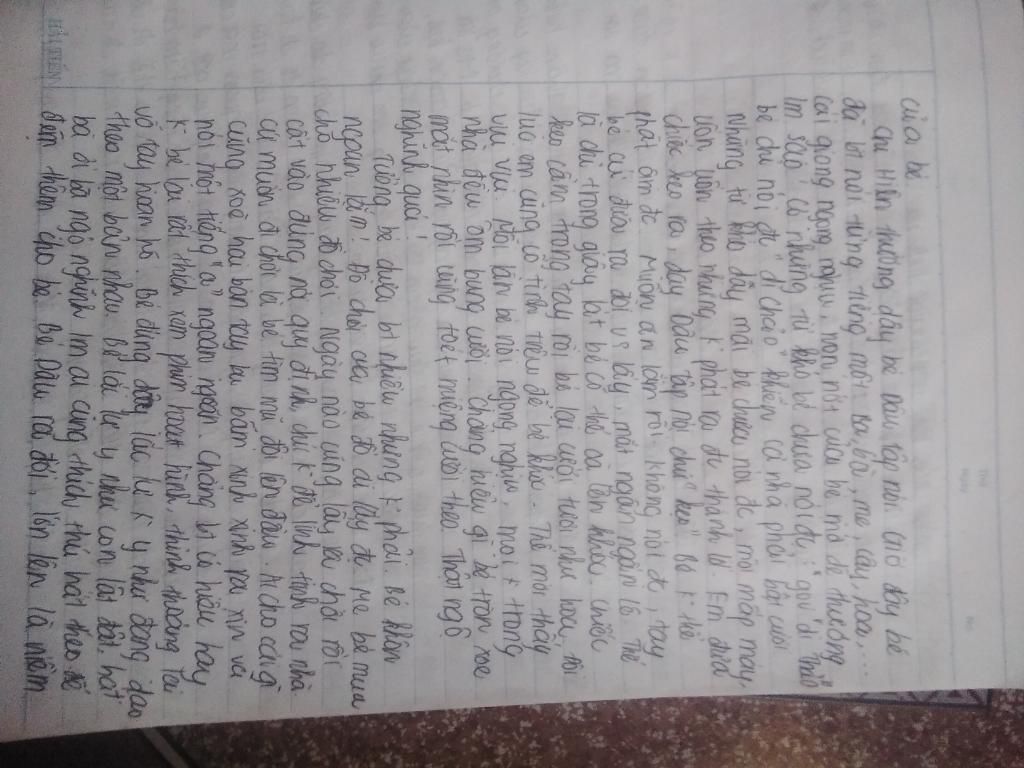 HẢI TIẾN
Thứ
Ngày
No.
của bé
Chị Hiền thường dạy bé Dâu tập nói. Giờ đây bé
đã bi nói từng tiếng một: ba, bà, mẹ, cây, hoa,...
cái giọng ngọng nghịu, non nớt của bé mà dễ thương
lm sao! có những từ khó bé chưa nói đc, gọi dì Thảo
bé chỉ nói đc "dì chảo" khiến cả nhà phải bật cười
Những từ khó dạy mãi bé chưa nói đc, môi mấp máy,
uốn uốn theo nhưng k phát ra đc thành lờ. Em đưa
chiếc kẹo ra dạy Dâu tập nói chữ "kẹo" Bé k thể
phát âm đc. Muốn ăn lắm rồi, không nói đc, tay
bé cứ điều ra đòi v lấy, mắt ngân ngấn lệ. Thế
là chỉ trong giây lát bé có thể oà lên khóc. chiếc
kẹo cầm trong tay rồi bé lại cười tươi như hoa, đôi
lúc em cũng cố tình trêu để bé khóc. Thế mới thấy
vui vui. Mỗi lần bé nói ngọng nghịu, mọi t trong
nhà đều ôm bụng cười. Chẳng hiểu gì bé tròn xoe
mắt nhìn rồi cũng toét miệng cười theo. Thật ngộ
nghĩnh quá!
Tưởng bé chưa bi nhiều nhưng k phải. Bé khôn
ngoan lắm! Đồ chơi của bé đố ai lấy đc. Mẹ bé mua
cho nhiều đồ chơi, ngày nào cũng lấy ra chơi rồi
cất vào đúng nơi quy định chứ k để linh tinh ra nhà
cứ muốn đi chơi là bé tìm mũ đội lên đầu. Ai cho cái gì
cũng xoè hai bàn tay bu bẫm xinh xinh ra xin và
nói một tiếng "ạ" ngoan ngoãn. Chẳng bt có hiểu hay
k bé lại rất thích xem phim hoạt hình, thỉnh thoảng lại
vỗ tay hoan hô. Bé đứng dậy lúc la k y như đang dạo
theo một bản nhạc. Bé lại lu y như con lật đật, hát
bà ơi bà ngộ nghĩnh lm ai cũng thích, thú hát theo để
đệm thêm cho bé. Bé Dâu ra đời, lớn lên là niềm